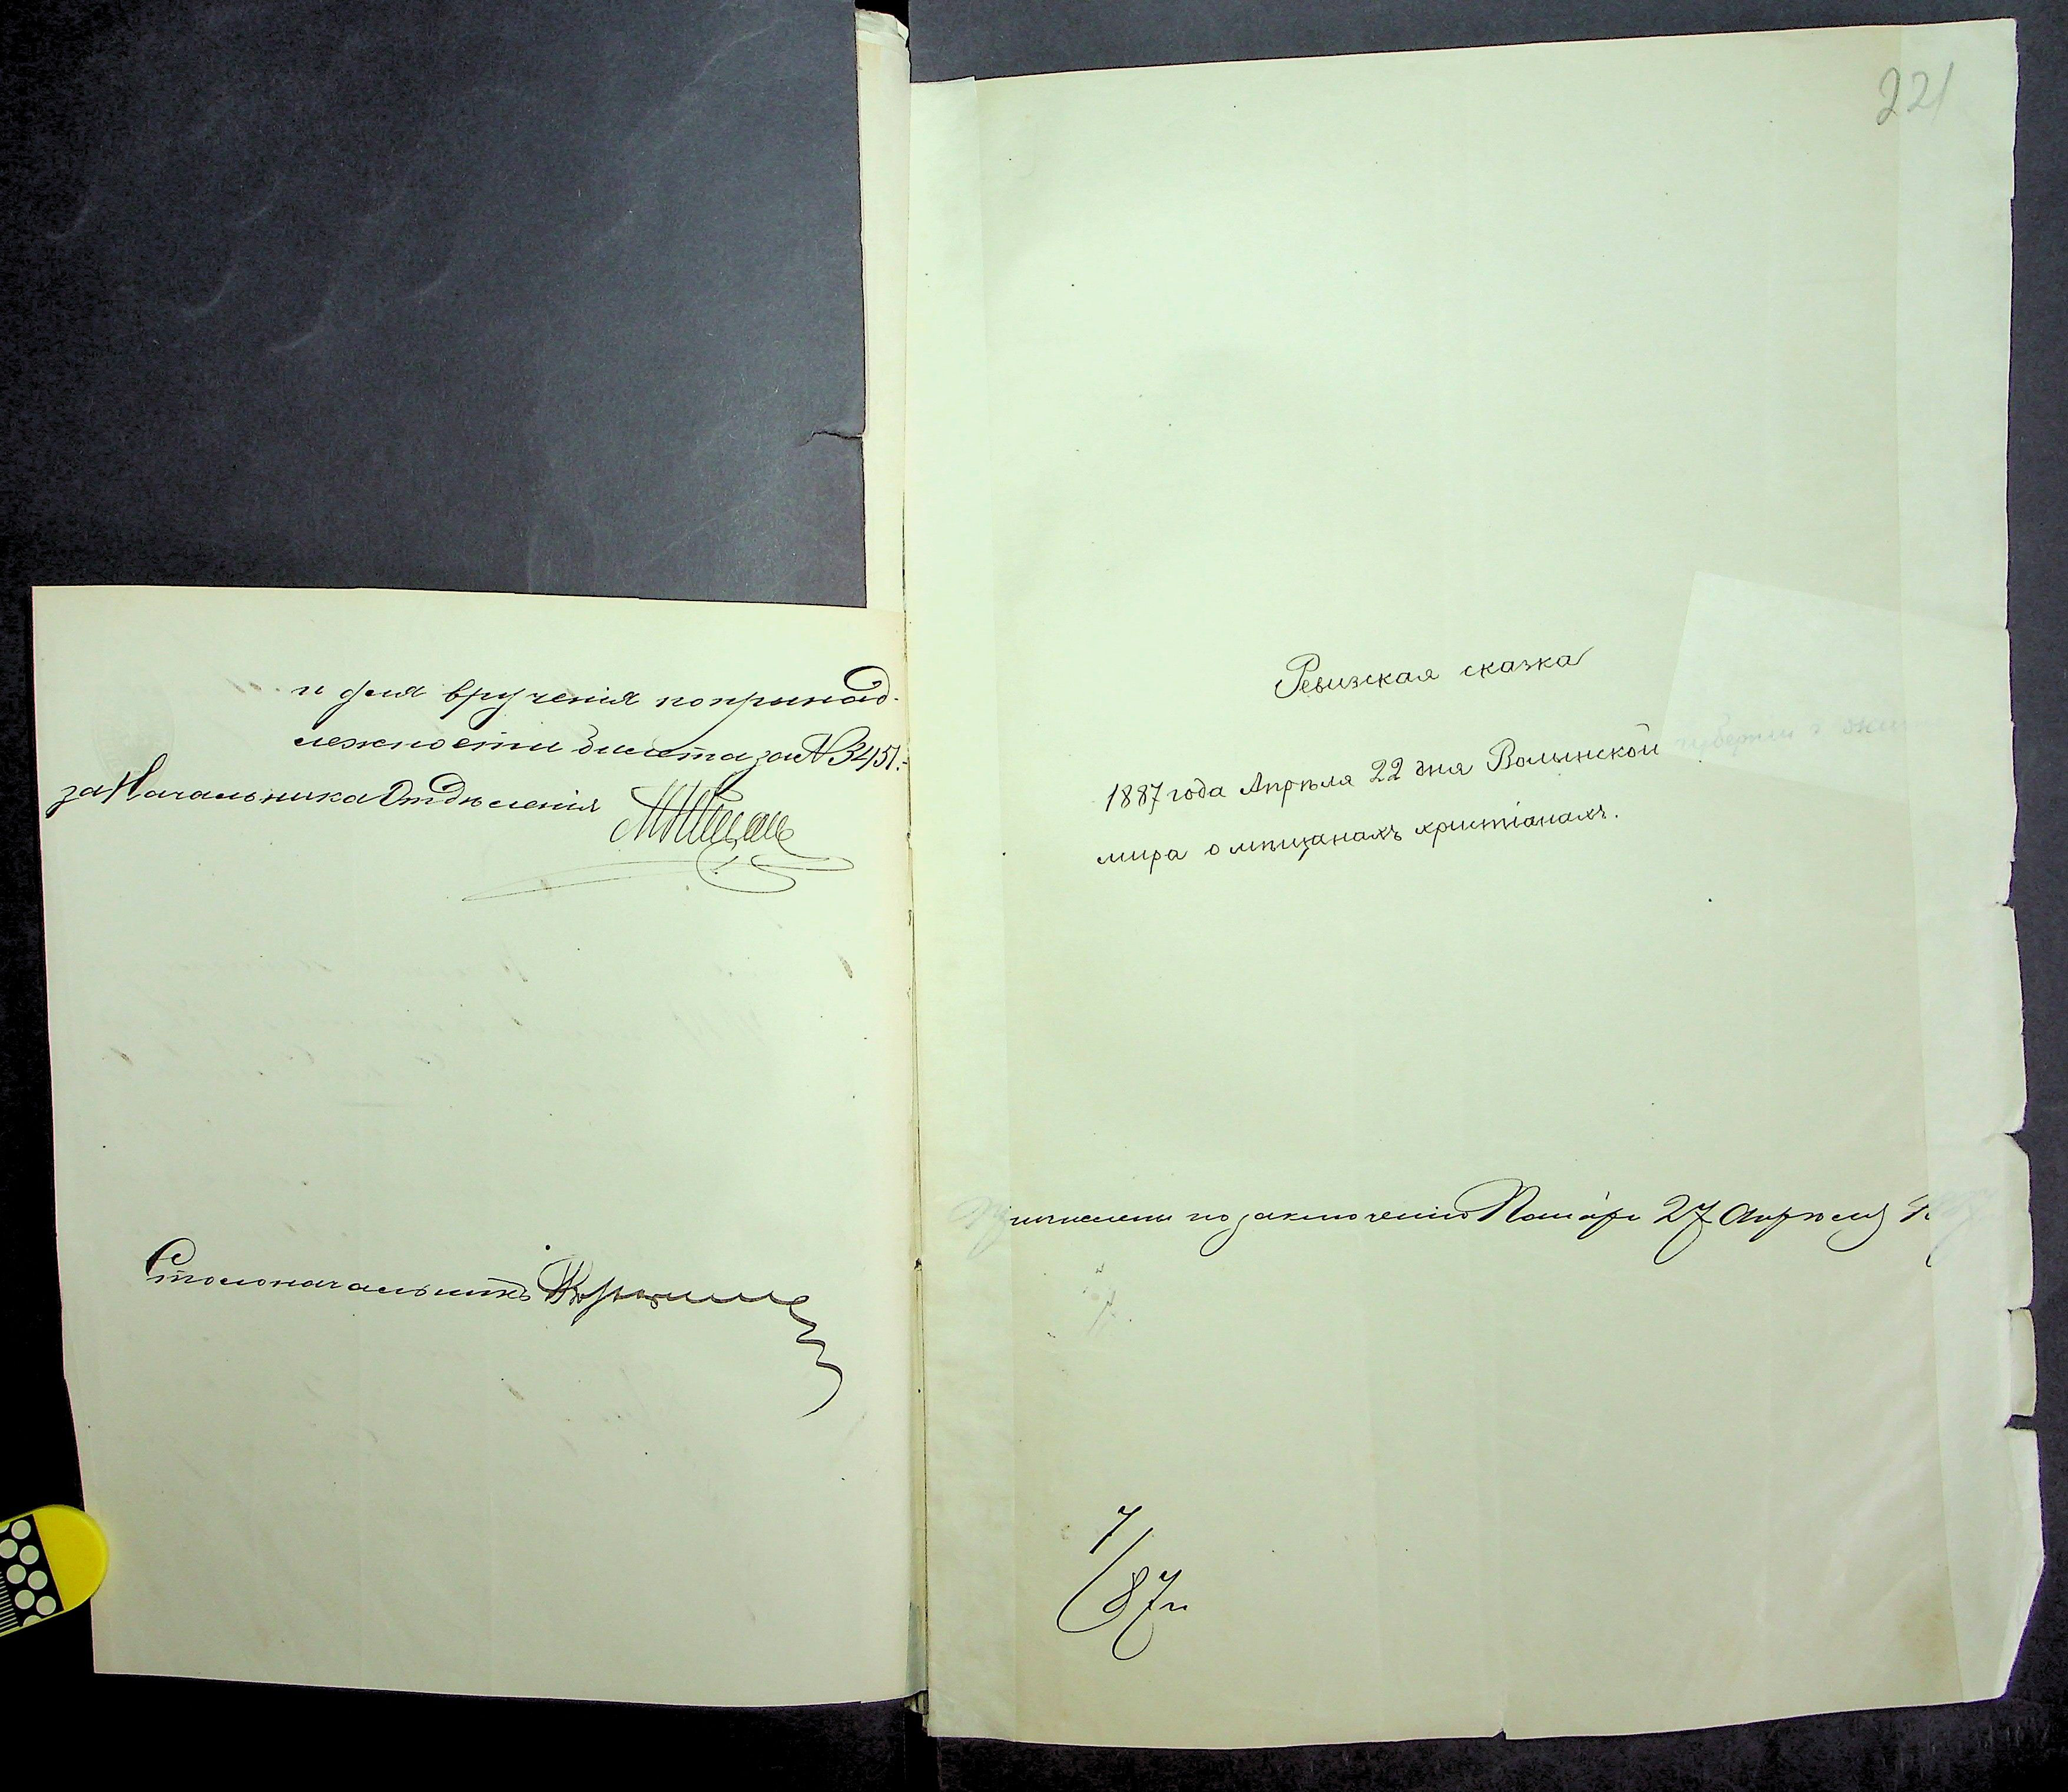 и для вручения попринад-
лежности билета за № 3451.-
за Начальника Отделенія
Столоначальникъ
221
Ревизская сказка
1887 года Апрѣля 22 дня Волынской
губерніи г. Жи
мира о мѣщанахъ христіанахъ.
Причислены по заключенію Палаты 27 Апрѣля 18
7/87 г.